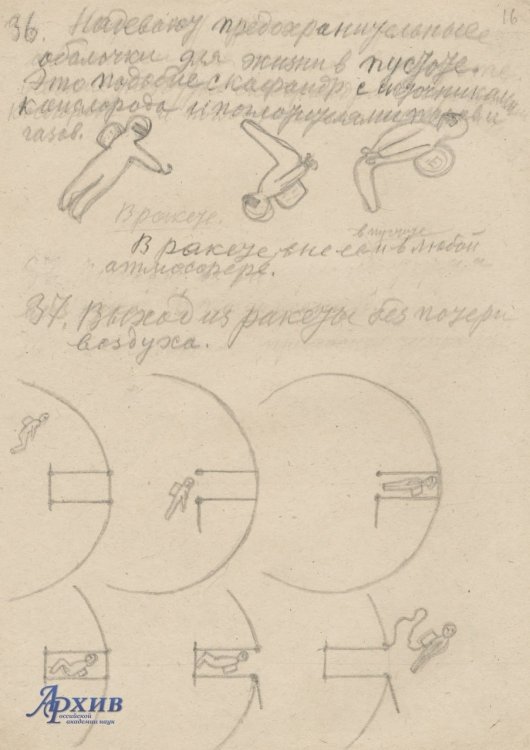 16
36. Надевают предохранительные
оболочки для жизни в пустоте.
Это подобие скафандр с источниками
кислорода и поглотителями паров и
газов.
В ракете.
в пустоте
В ракете, вне ее и в любой
атмосфере.
37. Выход из ракеты без потери
воздуха.
Архив
Российской
академии наук